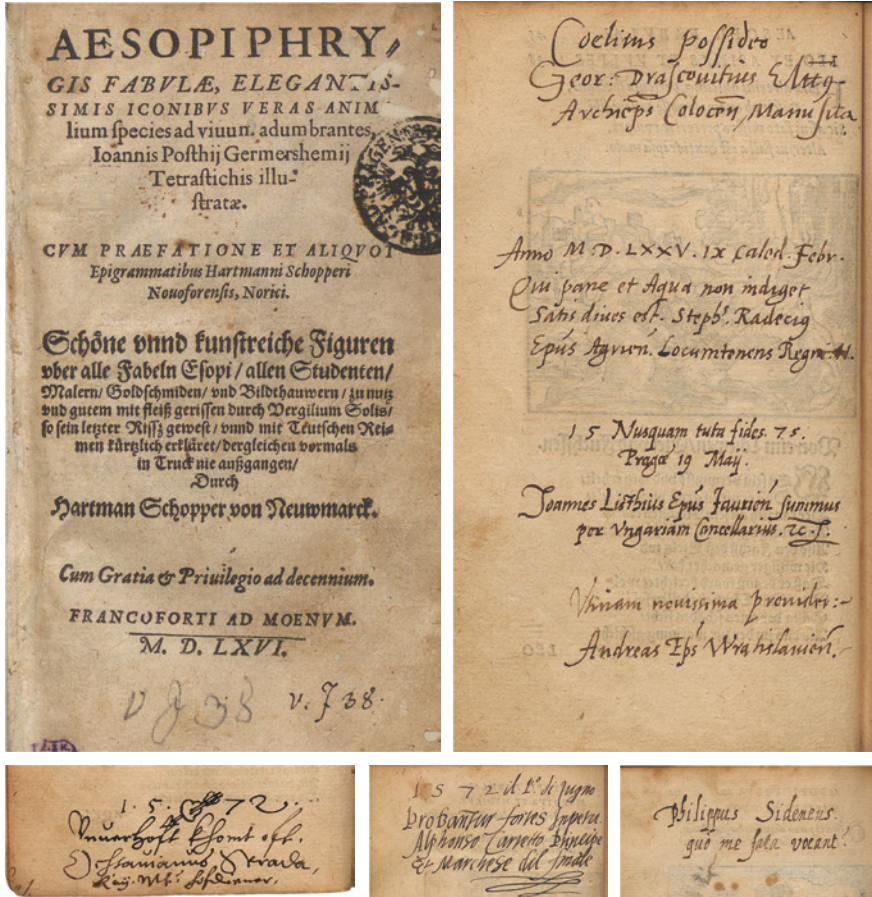 AESOPI PHRY,
GIS FABVLÆ, ELEGANTIS-
SIMIS ICONIBVS VERAS ANIM
lium species ad viuun. adumbrantes,
Ioannis Posthij Germershemij
Tetrastichis illu-
stratæ.
CVM PRAEFATIONE ET ALIQVOT
Epigrammatibus Hartmanni Schopperi
Nouoforensis, Norici.
Schöne vnnd kunstreiche Figuren
vber alle Fabeln Esopi / allen Studenten /
Malern / Goldschmiden / vnd Bildthauwern / zu nutz
vnd gutem mit fleiß gerissen durch Vergilium Solis /
so sein letzter Rissz gewest / vnnd mit Teutschen Rei-
men kürtzlich erkläret / dergleichen vormals
in Truck nie außgangen /
Durch
Hartman Schopper von Neuwmarck.
Cum Gratia & Priuilegio ad decennium.
FRANCOFORTI AD MOENVM.
M. D. LXVI.
v J 38
v. J 38.
Coelitus possideo
Geor: Drascouitius Electg
Archieps Colocen, Manu sua
Anno M.D.LXXV. IX Caled. Febr.
Qui pane et Aqua non indiget
Satis diues est. Stephs. Radecig
Epus Agrien. Locumtenens Regni
1 5 Nusquam tuta fides. 7 5.
Pragæ 19 Maij.
Joannes Listhius Epus Jaurien summus
per Vngariam Cancellarius.
Vtinam nouissima prouider:
Andreas Eps Wratislauien.
1. 5. 7 2.
Vnuerhoft khomt oft.
Octauianus Strada,
1 5 7 2 il po. di Jugno
Probantur fortes Impetu
Alphonso Carretto Principe
& Marchese del finale
Philippus Sideneus.
quo me fata vocant?